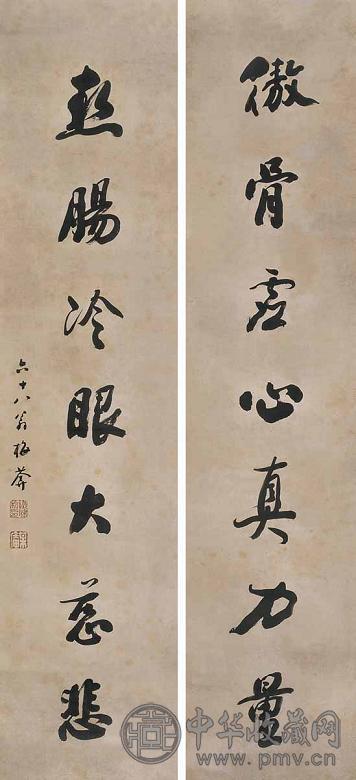 傲骨虚心真力量
热肠冷眼大慈悲
六十八翁梅荞
中华收藏网
www.pmv.cn